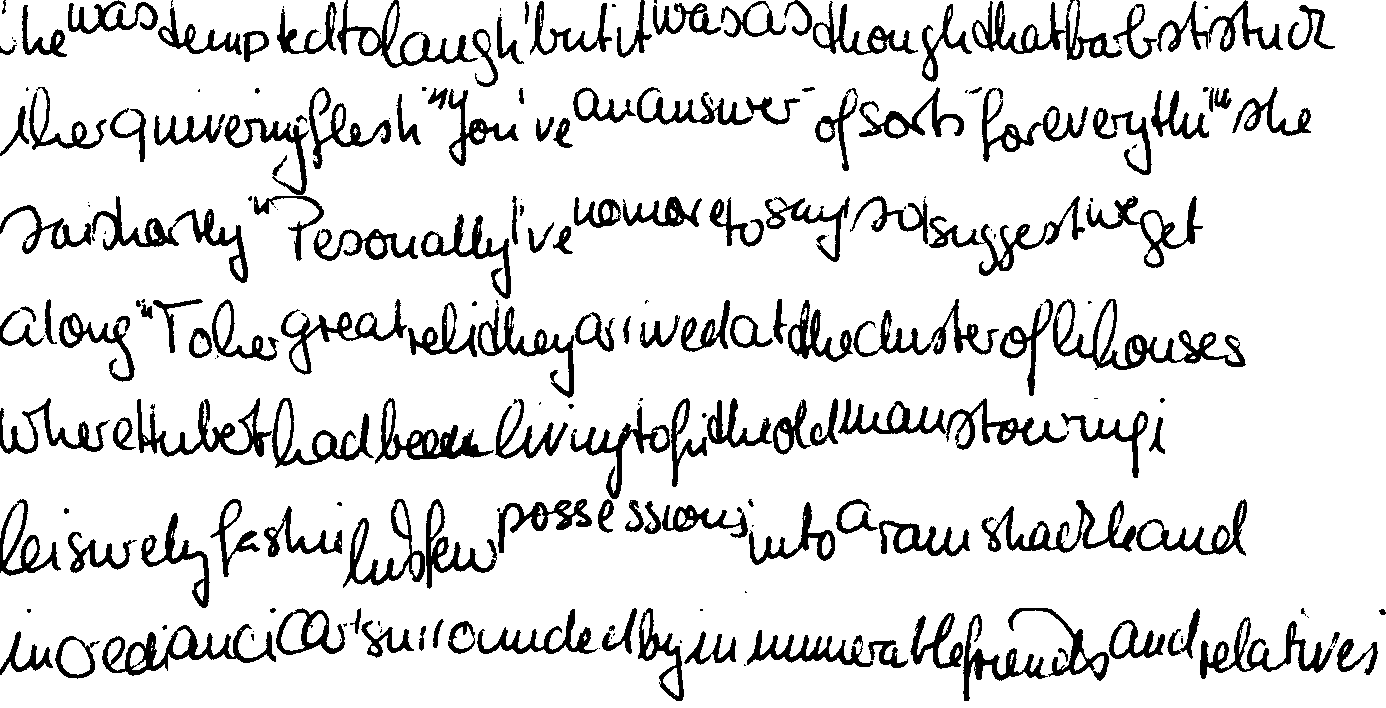 he was tempted to laugh, but it was as though that barb still stuck
in her quivering flesh. "You've an answer - of sorts - for everything," she
said shortly. "Personally, I've no more to say, so I suggest we get
along." To her great relief they arrived at the cluster of little houses
where Hubert had been living, to find the old man stowing in
leisurely fashion his few possessions into a ramshackle and
incredibly ancient car, surrounded by innumerable friends and relatives